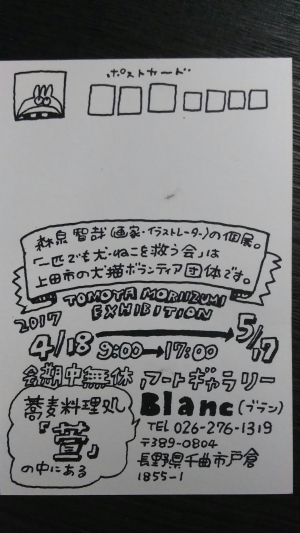 ポストカード
森泉智哉(画家・イラストレーター)の個展。
「一匹でも犬・ねこを救う会」は
上田市の犬猫ボランティア団体です。
TOMOYA MORIIZUMI
EXHIBITION
2017
4/18 → 5/17
9:00→17:00
会期中無休
アートギャラリー
Blanc(ブラン)
蕎麦料理処
「萱」
の中にある
TEL 026-276-1319
〒389-0804
長野県千曲市戸倉
1855-1